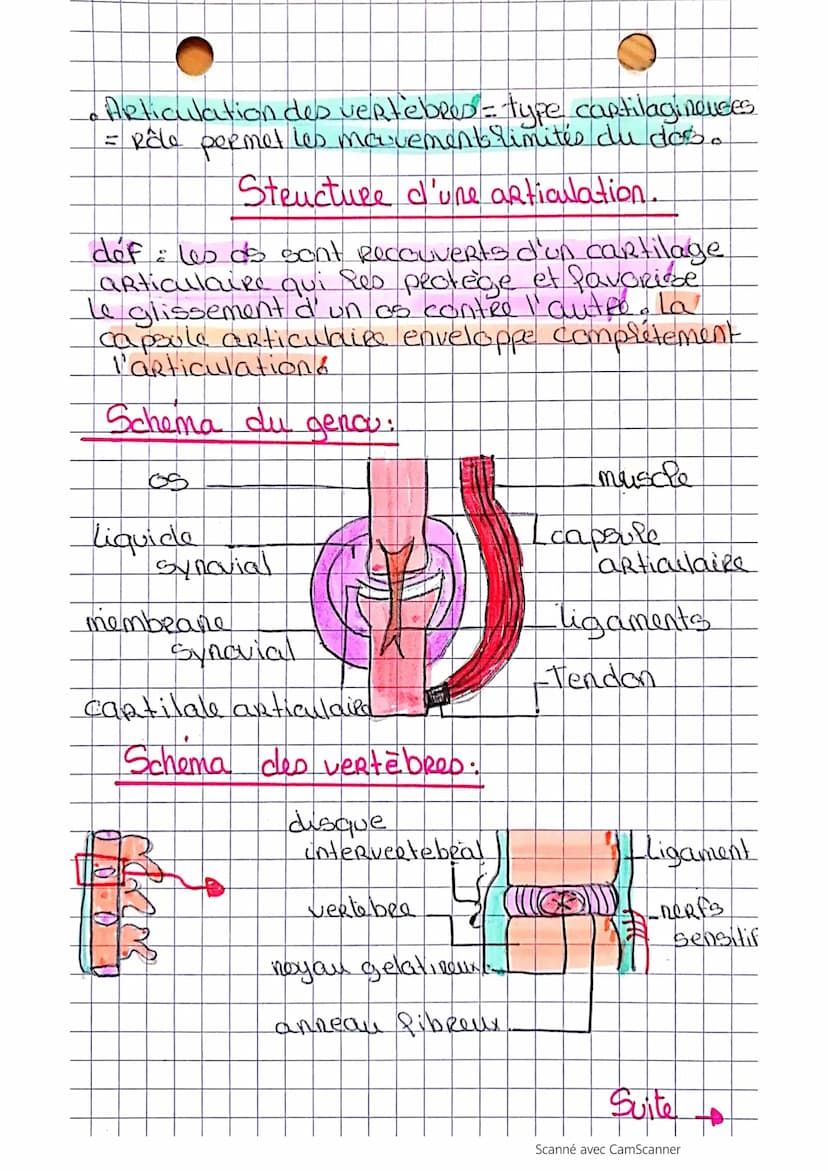 . Articulation des vertèbres = type cartilagineuses
= Rôle permet les mouvements limités du dos.
Structure d'une articulation.
déf : les os sont recouverts d'un cartilage
articulaire qui les protège et favorise
le glissement d'un os contre l'autre. La
capsule articulaire enveloppe complètement
l'articulation.
Schéma du genou:
os
muscle
liquide
synovial
capsule
articulaire
membrane
synovial
ligaments
Tendon
cartilale articulaire
Schéma des vertèbres:
disque
intervertebral
Ligament
vertebra
nerfs
sensitif
noyau gelatineux
anneau fibreux
Suite →
Scanné avec CamScanner